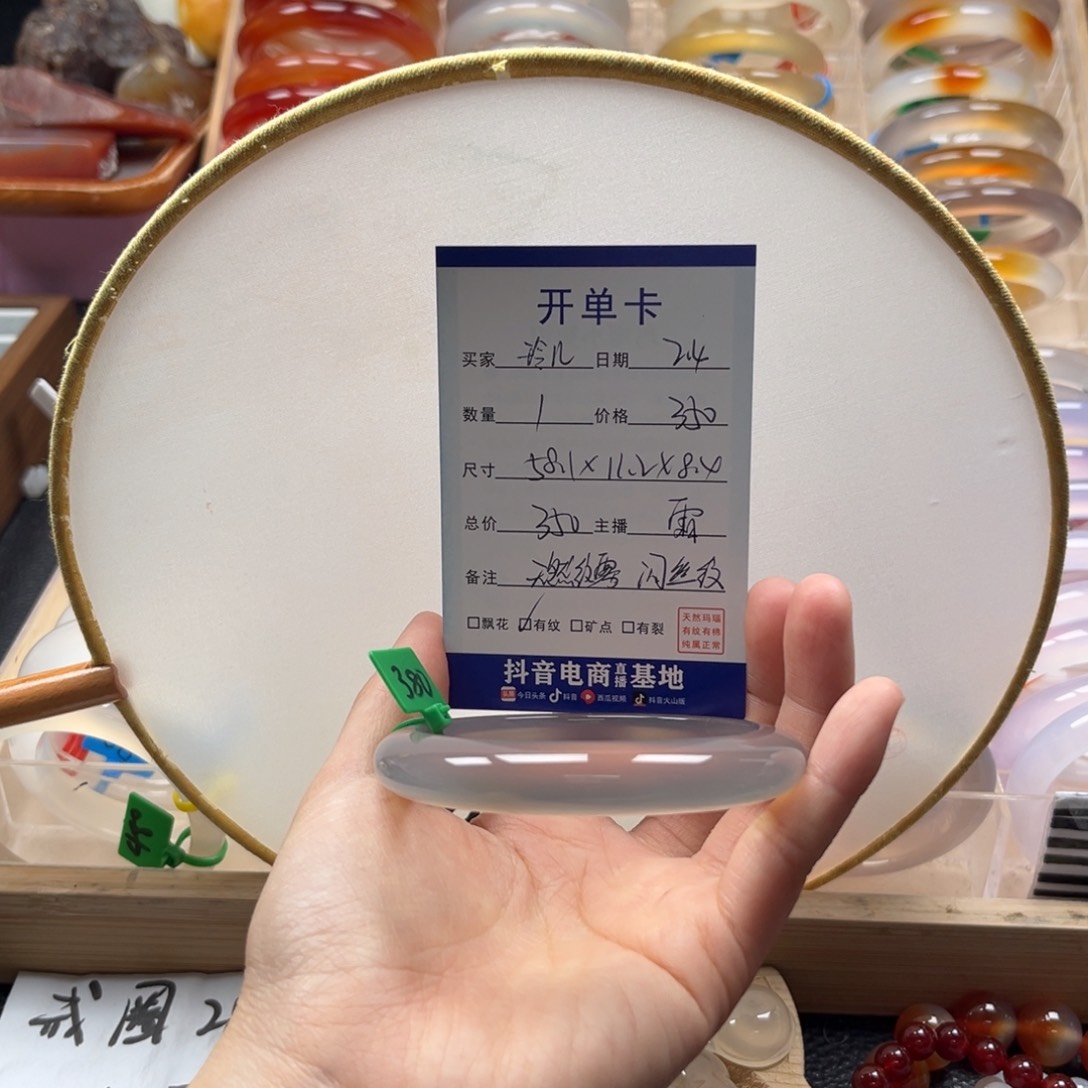 开单卡
买家 玲儿 日期 2.4
数量 1 价格 350
尺寸 58.1×11.2×8.4
总价 350 主播 霜
备注 闪丝纹
□飘花 □有纹 □矿点 □有裂
天然玛瑙
有纹有棉
纯属正常
抖音电商直播基地
头条 今日头条 抖音 西瓜视频 抖音火山版
380